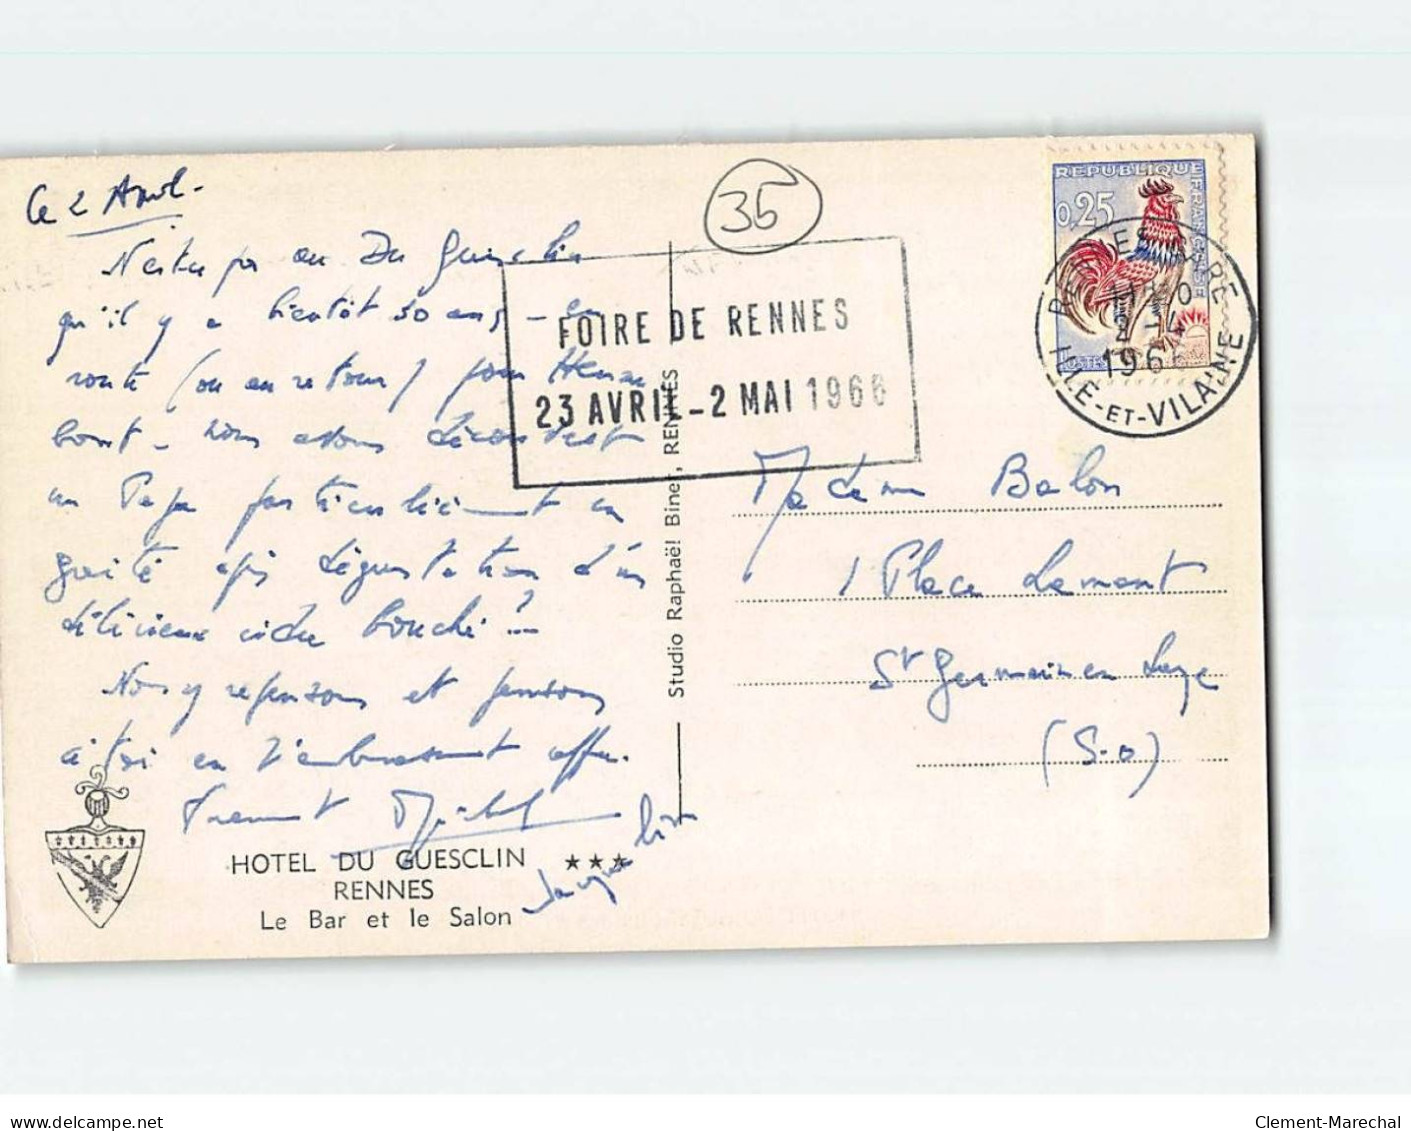 Le 2 Avril -
35
N'étais pas au Du Guesclin
qu'il y a bientôt 30 ans - en
route (ou au retour) pour
bout - Nous avons découvert
un Papa particulièrement en
gaité après dégustation d'un
délicieux cidre bouché !
Nous y repensons et pensons
à toi en t'embrassant affec.
Michel
HOTEL DU GUESCLIN ★★★
RENNES
Le Bar et le Salon
Studio Raphaël Biner, RENNES
FOIRE DE RENNES
23 AVRIL - 2 MAI 1966
REPUBLIQUE FRANCAISE
0,25
POSTES
RENNES GARE
2 - 4
196
ILLE-ET-VILAINE
Madame Balon
1 Place Lamant
St Germain en Laye
(S-O)
Clement-Marechal